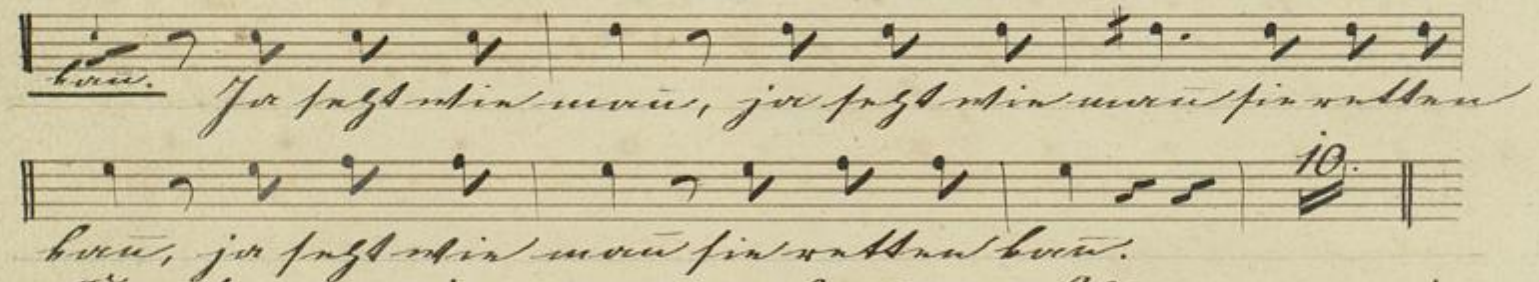 kan̄. Ja seht wie man̄, ja seht wie man̄ sie retten
10.
kan̄, ja seht wie man̄ sie retten kan̄.